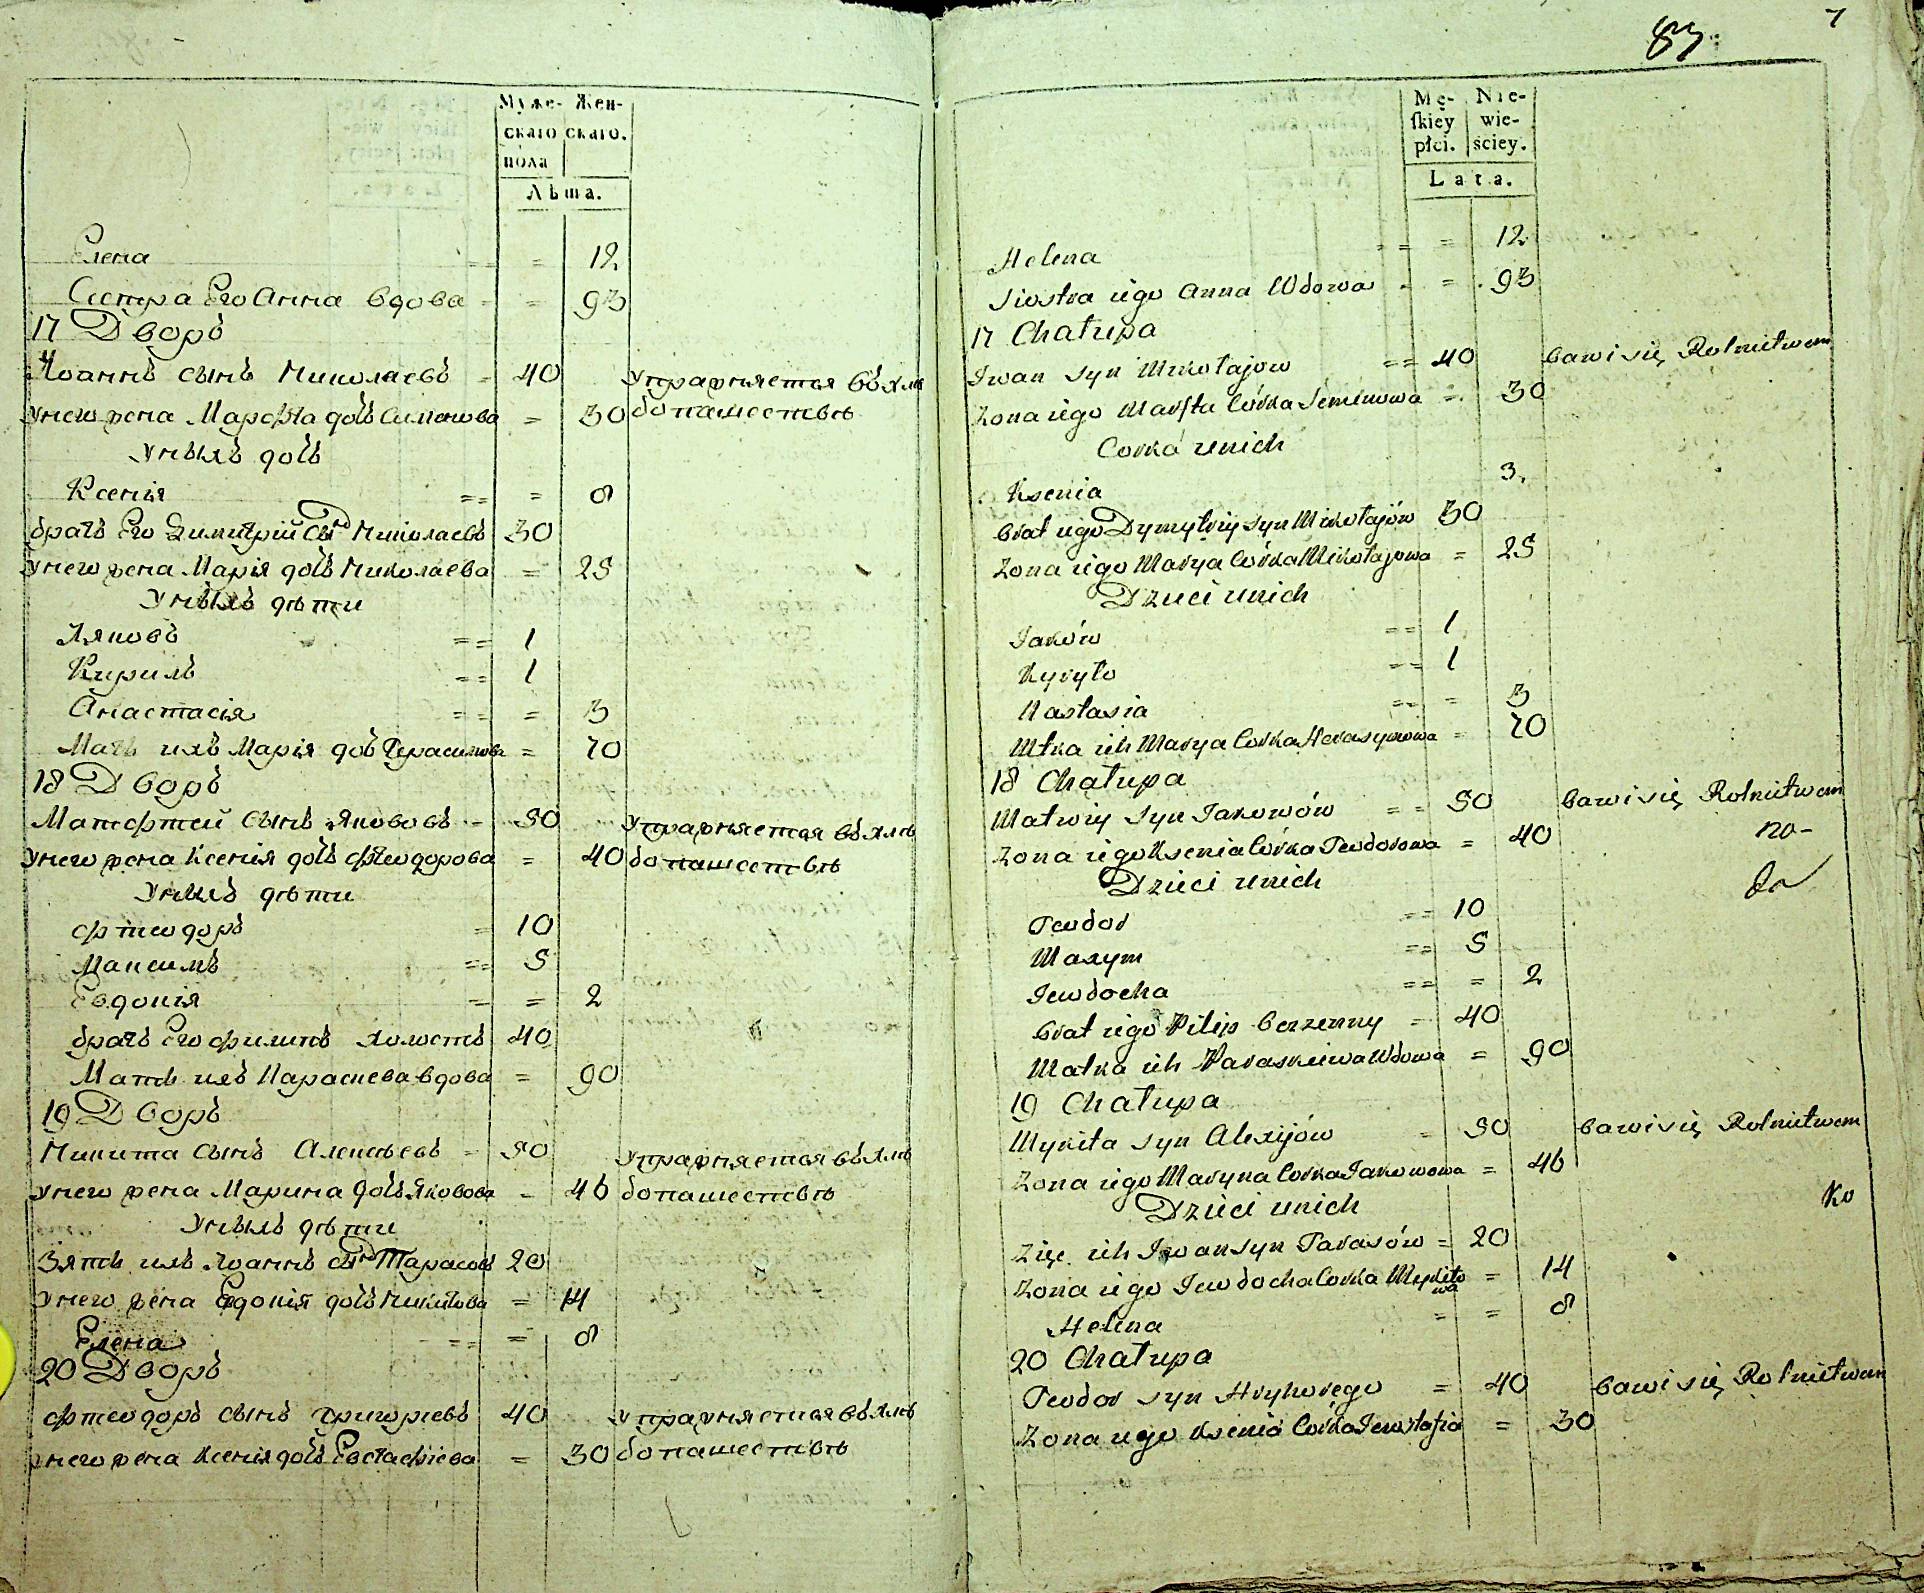 Муже- Жен-
скаго скаго.
пола
Лѣта.
Елена = = = 12
Сестра Его Анна вдова = = 93
17 Дворъ
Іоаннъ сынъ Николаевъ = 40 упражняется въ хлѣ
унего жена Марфа дочь Семенова = 30 бопашествѣ
Унихъ дочь
Ксенія = = = 8
братъ Его Димитрій сынъ Николаевъ 30
Унего жена Марія дочь Николаева = 25
Унихъ дѣти
Яковъ = = 1
Кирилъ = = 1
Анастасія = = = 3
Мать ихъ Марія дочь Герасимова = 70
18 Дворъ
Матфтей сынъ Якововъ = 50 упражняется въ хлѣ
унего жена Ксенія дочь Фтеодорова = 40 бопашествѣ
Унихъ дѣти
Фтеодоръ = 10
Максимъ = = 5
Евдокія = = 2
братъ Его Филипъ холостъ 40
Мать ихъ Параскева вдова = 90
19 Дворъ
Никита сынъ Алексѣевъ = 50 упражняется въ хлѣ
унего жена Марина дочь Яковова = 46 бопашествѣ
Унихъ дѣти
Зять ихъ Іоаннъ сынъ Тарасовъ 20
Унего жена Евдокія дочь Никитова = 14
Елена = = = 8
20 Дворъ
Фтеодоръ сынъ Григорієвъ 40 упражняется въ хлѣ
унего жена Ксенія дочь Евстафієва = 30 бопашествѣ
7
83
Mę- Nie-
skiey wie-
płci. ściey.
Lata.
Helena = = = 12
Siostra iego Anna Wdowa = 93
17 Chałupa
Iwan syn Mikołajow = = 40 bawi się Rolnictwem
Zona iego Marfta Córka Seminowa = 30
Corka unich
Ksenia 3.
brat iego Dymytry syn Mikołajów 30
Zona iego Marya Córka Mikołajowa = 25
Dzieci unich
Jaków = = 1
Kyryło = = 1
Nastasia = = = 3
Mtka ich Marya Corka Herasymowa = 70
18 Chałupa
Matwiy syn Jakowów = = 50 bawi się Rolnictwem
Zona iego Ksenia Córka Teodorowa = 40 no-
Dzieci unich
Teodor = = 10
Maxym = = 5
Jewdocha = = = 2
brat iego Pilip bezzenny = 40
Matka ich Paraskiewa Wdowa = 90
19 Chałupa
Mykita syn Alexijów = 50 bawi się Rolnictwem
Zona iego Maryna Corka Jakowowa = 46
Dzieci unich ko
Zięc ich Iwan syn Tarasów = 20
Zona iego Jewdocha Corka Mykito = 14
wa
Helena = = 8
20 Chałupa
Teodor syn Hryhorego = 40 bawi się Rolnictwem
Zona iego Ksenia Córka Jewstafia = 30